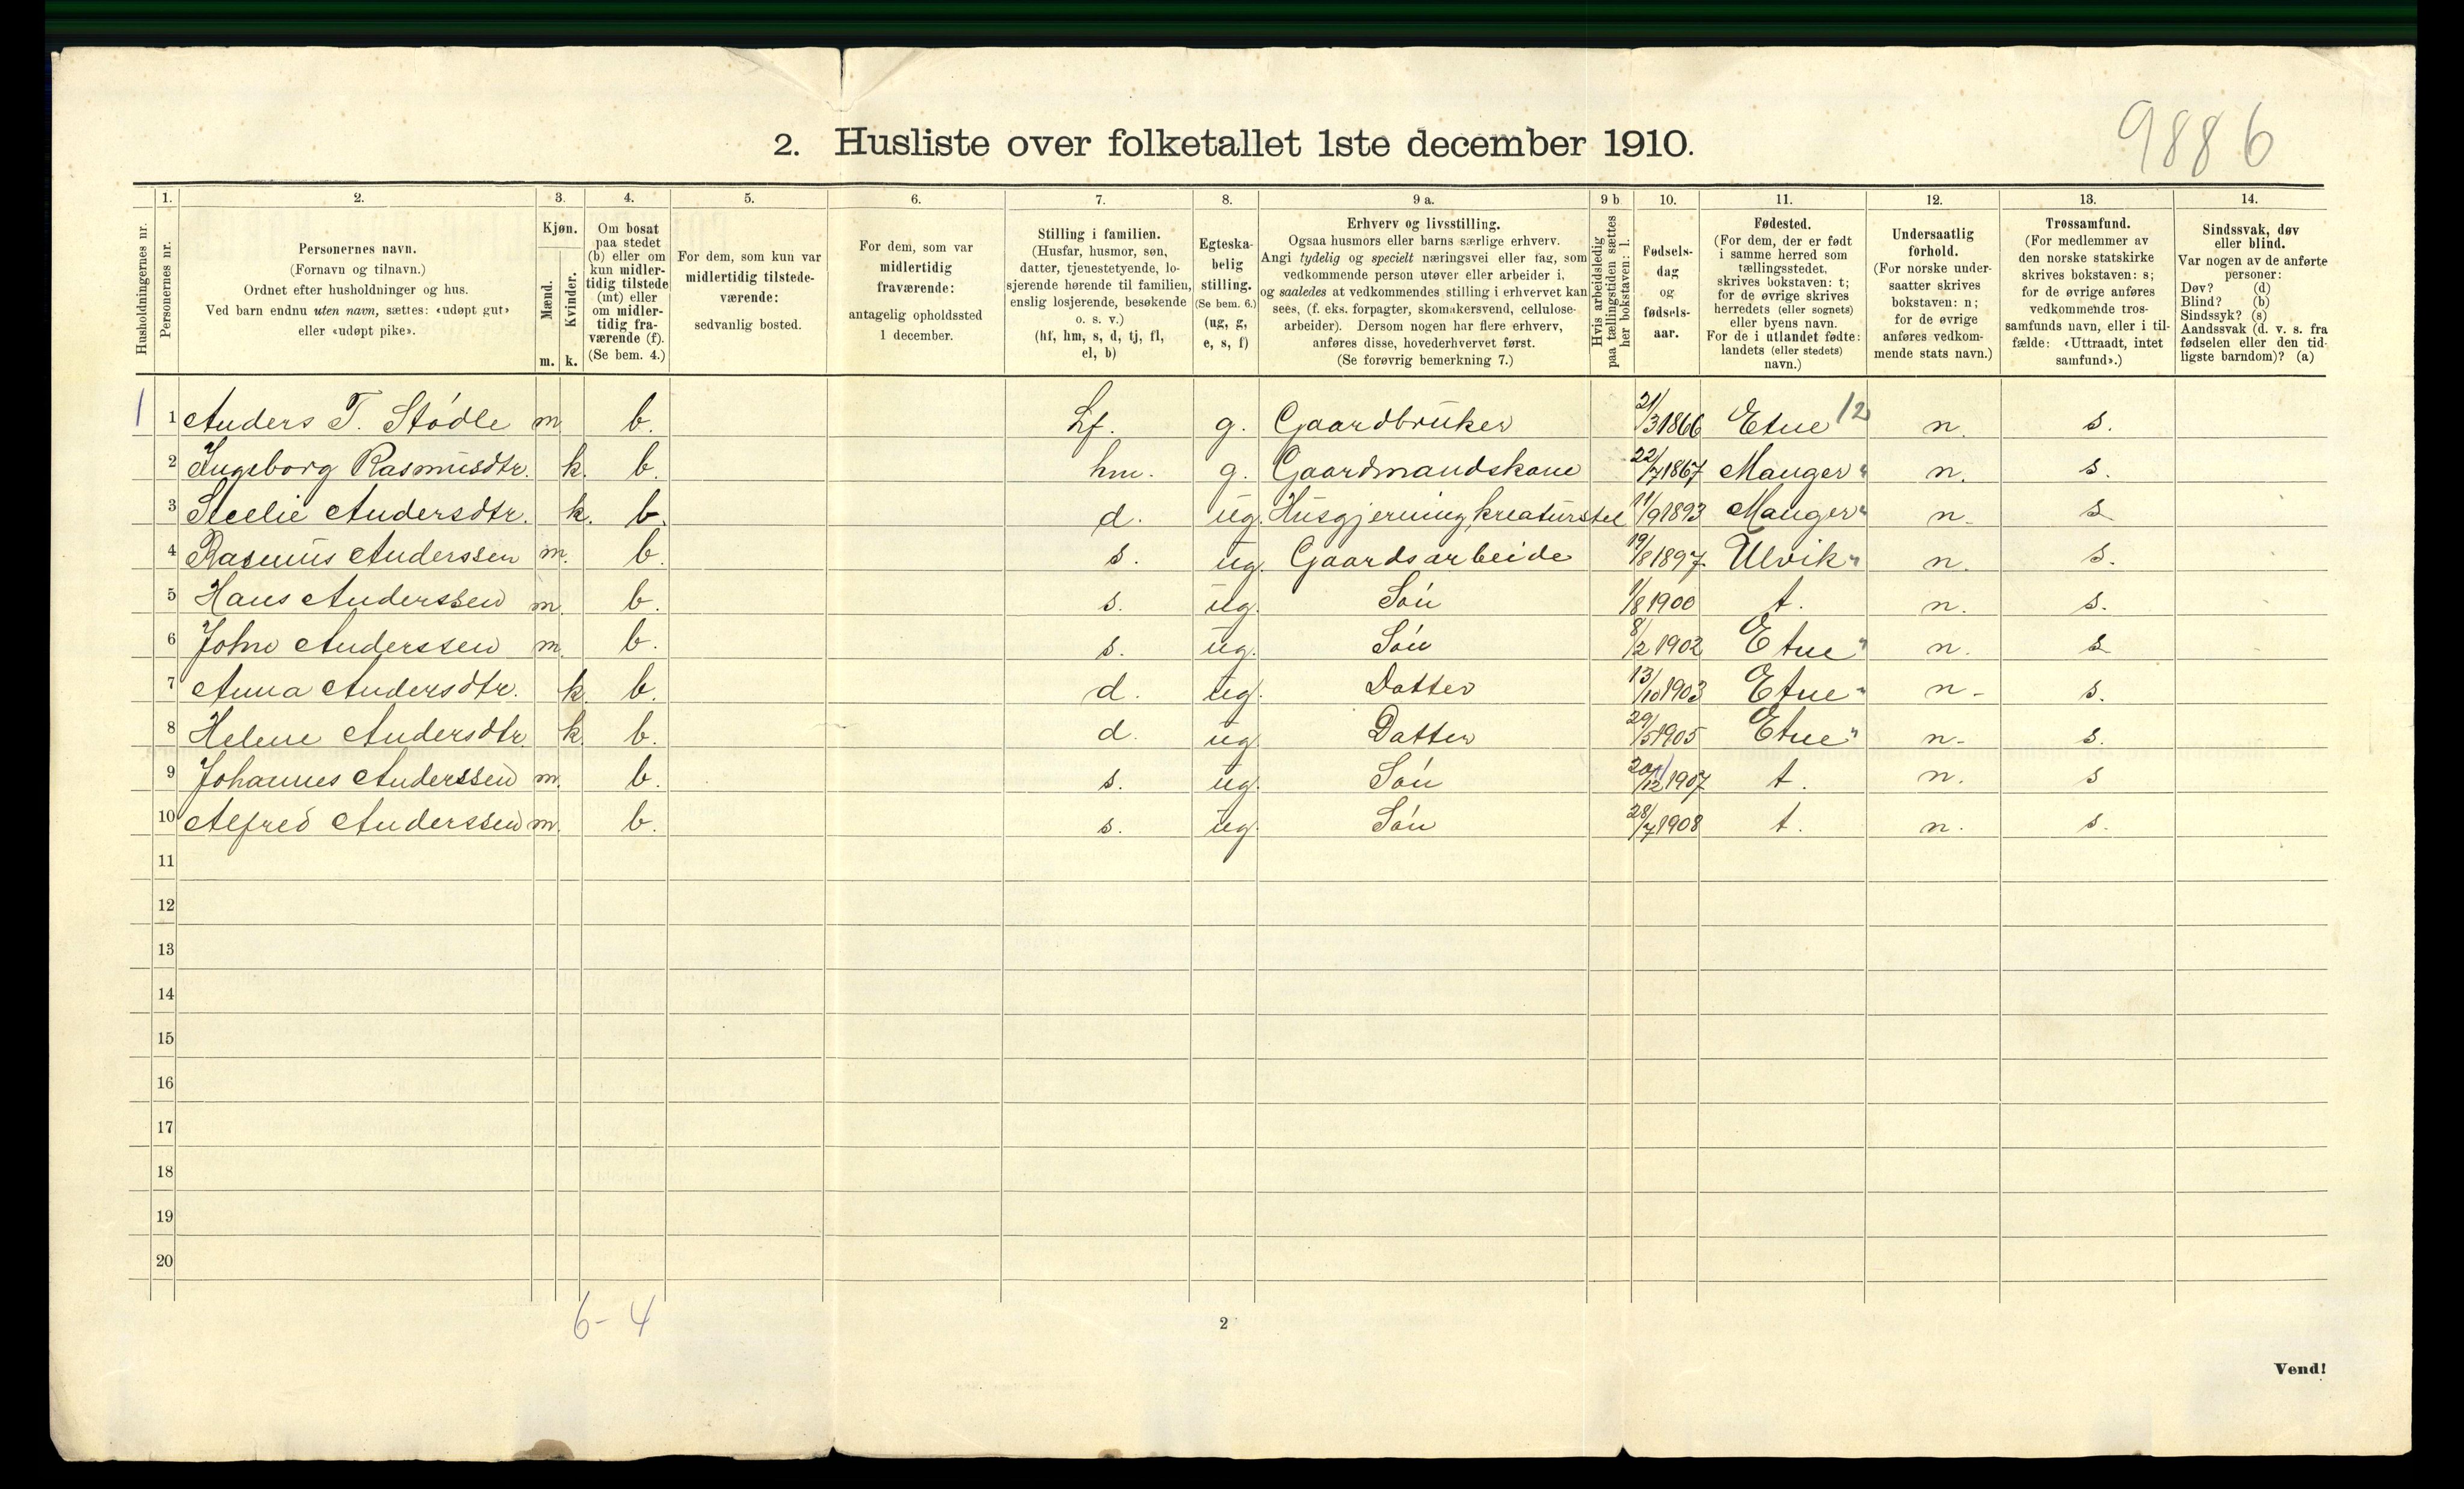 9886
2. Husliste over folketallet 1ste december 1910.
Husholdningernes nr.
1.
Personernes nr.
2.
Personernes navn.
(Fornavn og tilnavn.)
Ordnet efter husholdninger og hus.
Ved barn endnu uten navn, sættes: «udøpt gut»
eller «udøpt pike».
3.
Kjøn.
Mænd.
m.
Kvinder.
k.
4.
Om bosat
paa stedet
(b) eller om
kun midler-
tidig tilstede
(mt) eller
om midler-
tidig fra-
værende (f).
(Se bem. 4.)
5.
For dem, som kun var
midlertidig tilstede-
værende:
sedvanlig bosted.
6.
For dem, som var
midlertidig
fraværende:
antagelig opholdssted
1 december.
7.
Stilling i familien.
(Husfar, husmor, søn,
datter, tjenestetyende, lo-
sjerende hørende til familien,
enslig losjerende, besøkende
o. s. v.)
(hf, hm, s, d, tj, fl,
el, b)
8.
Egteska-
belig
stilling.
(Se bem. 6.)
(ug, g,
e, s, f)
9 a.
Erhverv og livsstilling.
Ogsaa husmors eller barns særlige erhverv.
Angi tydelig og specielt næringsvei eller fag, som
vedkommende person utøver eller arbeider i,
og saaledes at vedkommendes stilling i erhvervet kan
sees, (f. eks. forpagter, skomakersvend, cellulose-
arbeider). Dersom nogen har flere erhverv,
anføres disse, hovederhvervet først.
(Se forøvrig bemerkning 7.)
9 b
Hvis arbeidsledig
paa tællingstiden sættes
her bokstaven: l.
10.
Fødsels-
dag
og
fødsels-
aar.
11.
Fødested.
(For dem, der er født
i samme herred som
tællingsstedet,
skrives bokstaven: t;
for de øvrige skrives
herredets (eller sognets)
eller byens navn.
For de i utlandet fødte:
landets (eller stedets)
navn.)
12.
Undersaatlig
forhold.
(For norske under-
saatter skrives
bokstaven: n;
for de øvrige
anføres vedkom-
mende stats navn.)
13.
Trossamfund.
(For medlemmer av
den norske statskirke
skrives bokstaven: s;
for de øvrige anføres
vedkommende tros-
samfunds navn, eller i til-
fælde: «Uttraadt, intet
samfund».)
14.
Sindssvak, døv
eller blind.
Var nogen av de anførte
personer:
Døv? (d)
Blind? (b)
Sindssyk? (s)
Aandssvak (d. v. s. fra
fødselen eller den tid-
ligste barndom)? (a)
1 1 Anders T. Stødle m. b. hf. g. Gaardbruker 21/3 1866 Etne 12 n. s.
2 Ingeborg Rasmusdtr. k. b. hm. g. Gaardmandskone 22/7 1867 Manger " n. s.
3 Seelie Andersdtr. k. b. d. ug. Husgjerning, kreaturstel 11/9 1893 Manger " n. s
4 Rasmus Anderssen m. b. s. ug. Gaardsarbeide 19/8 1897 Ulvik " n. s.
5 Hans Anderssen m. b. s. ug. Søn 1/8 1900 t. n. s.
6 John Anderssen m. b. s. ug. Søn 8/2 1902 Etne " n. s
7 Anna Andersdtr. k. b. d. ug. Datter 13/10 1903 Etne " n- s.
8 Helene Andersdtr. k. b. d. ug. Datter 29/5 1905 Etne " n- s.
9 Johannes Anderssen m. b. s. ug. Søn 20/12 1907 t. n. s
10 Alfred Anderssen m. b. s. ug. Søn 28/7 1908 t. n. s.
11
12
13
14
15
16
17
18
19
20
6-4
2
Vend!